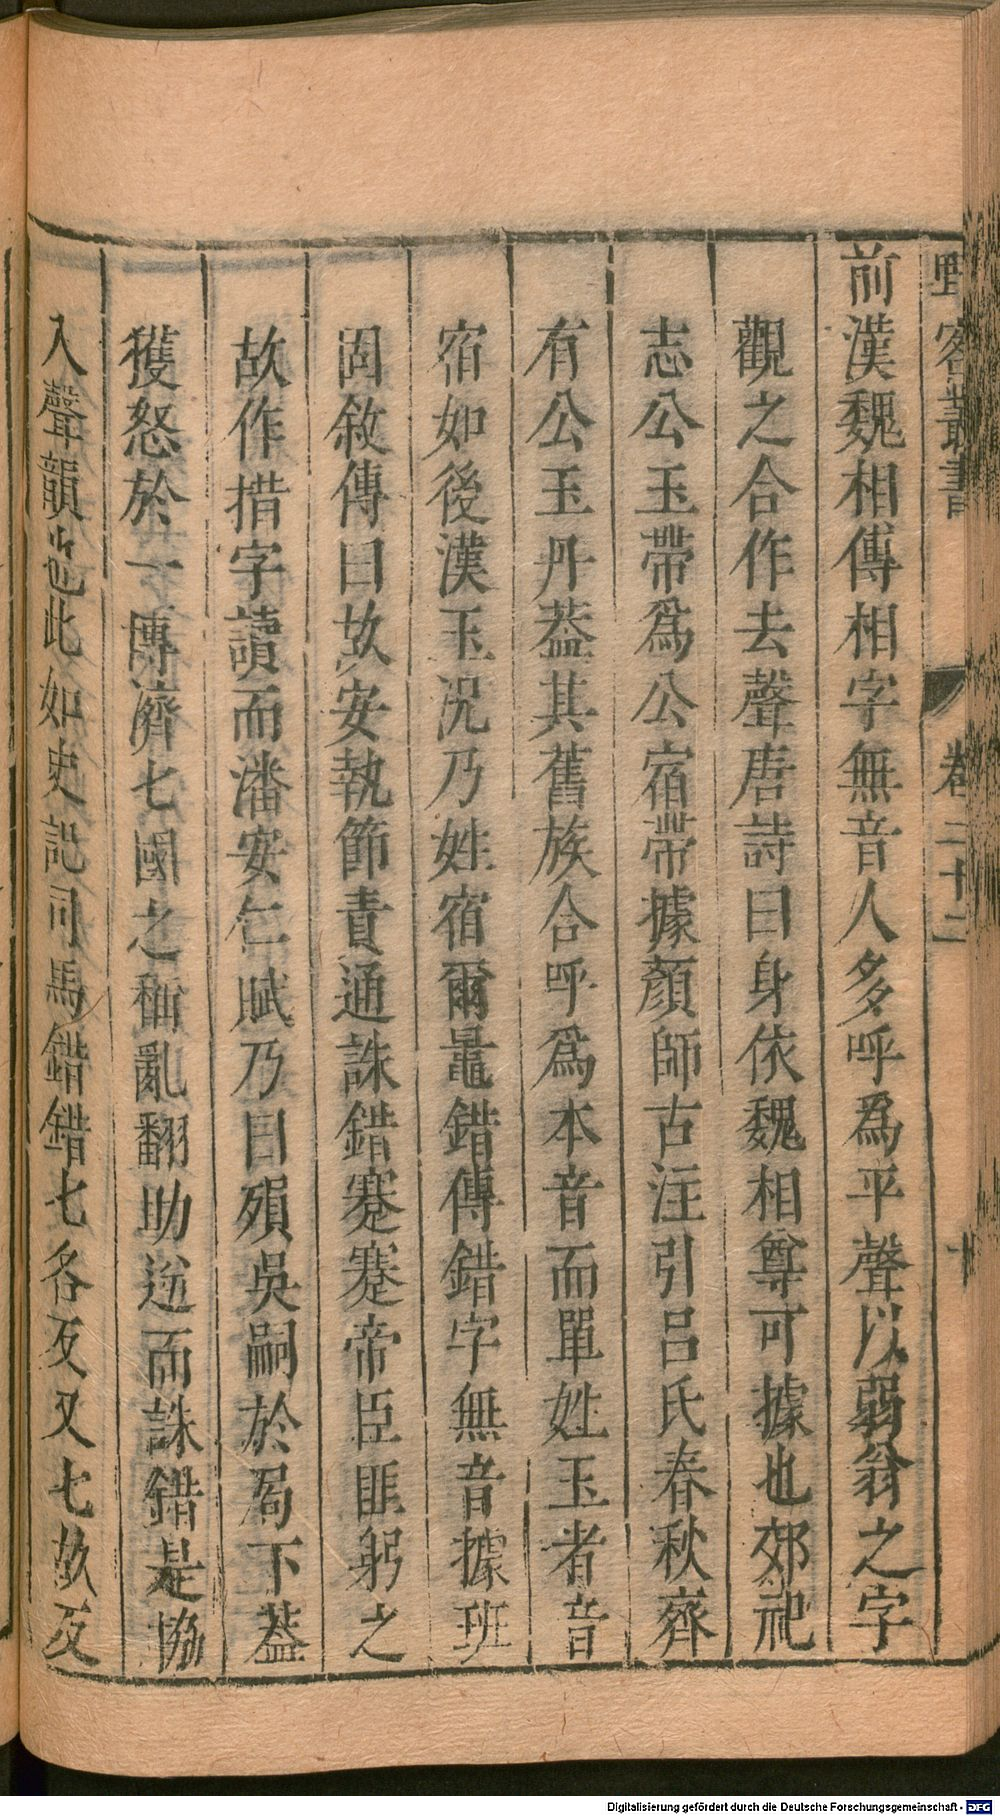 野客叢書 卷二十二 十
前漢魏相傳相字無音人多呼爲平聲以弱翁之字
觀之合作去聲唐詩曰身依魏相尊可據也郊祀
志公玉帶爲公宿帶據顏師古注引呂氏春秋齊
有公玉丹葢其舊族合呼爲本音而單姓玉者音
宿如後漢玉況乃姓宿爾鼂錯傳錯字無音據班
固敘傳曰故安執節責通誅錯蹇蹇帝臣匪躬之
故作措字讀而潘安仁賦乃曰殞吳嗣於局下葢
獲怒於一博濟七國之稱亂翻助逆而誅錯是協
入聲韻也此如史記司馬錯錯七各反又七故反
Digitalisierung gefördert durch die Deutsche Forschungsgemeinschaft - DFG